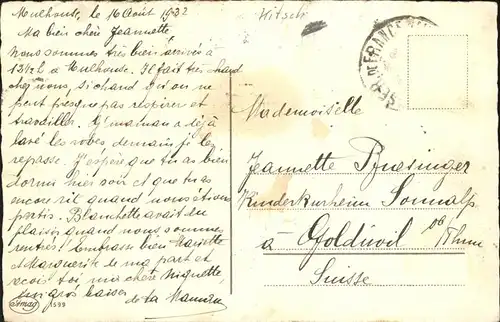 Mulhouse, le 16 Août 1932
Ma bien chère Jeannette,
Nous sommes très bien arrivés à
13½ h à Mulhouse. Il fait très chaud
chez nous, si chaud qu'on ne
peut presque pas respirer et
travailler. Ta maman a déjà
lavé les robes, demain je les
repasse. J'espère que tu as bien
dormi hier soir et que tu as
encore ri quand nous étions
partis. Blanchette avait du
plaisir quand nous sommes
rentrés. Embrasse bien
et Marguerite de ma part et
reçois toi, ma chère
un gros baiser
de ta Maman
Artmag
599
Kitsch
Mademoiselle
Jeannette
Kinderkurheim Sonnalp
à Goldiwil ob Thun
Suisse